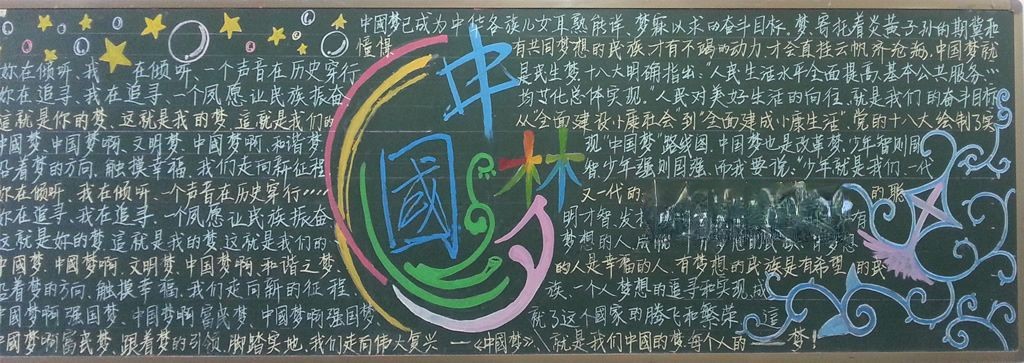 中國梦
你在倾听、我 在倾听、一个声音在历史穿行
你在追寻、我在追寻、一个凤愿让民族振奋
這就是你的梦、这就是我的梦、這就是我们的
中國梦、中國梦啊、文明梦、中国梦啊、和谐梦
沿着梦的方向、触摸幸福、我们走向新征程
你在倾听、我在倾听、一个声音在历史穿行……
你在追寻、我在追寻、一个凤愿让民族振奋
这就是你的梦這就是我的梦这就是我们的
中國梦、中國梦啊、文明梦、中国梦啊、和谐之梦、
沿着梦的方向、触摸幸福、我们走向新的征程、
中國梦啊强国梦、中国梦啊富民梦、中國梦啊强国梦、
中國梦啊富民梦、跟着梦的引领、脚踏实地、我们走向伟大复兴 —《中國梦》
中國梦已成为中华各族儿女耳熟能详、梦寐以求的奋斗目标。梦、寄托着炎黄子孙的期冀和
憧憬
有共同梦想的民族才有不竭的动力、才会直挂云帆济沧海。中国梦就
是民生梦、十八大明确指出：“人民生活水平全面提高、基本公共服务…
均等化总体实现。”人民对美好生活的向往、就是我们的奋斗目标
从“全面建设小康社会”到“全面建成小康生活”党的十八大绘制了实
现“中國梦”路线图、中国梦也是改革梦、少年智则国
智、少年强则国强、而我要说：“少年就是我们一代
又一代的 的聪
明才智、发 有
梦想的人 梦想
的人是幸福的人、有梦想的民族是有希望的民
族、一个人梦想的追寻和实现、成
就了这个國家的腾飞和繁荣 這
就是我们中国的梦、每个人的 梦！